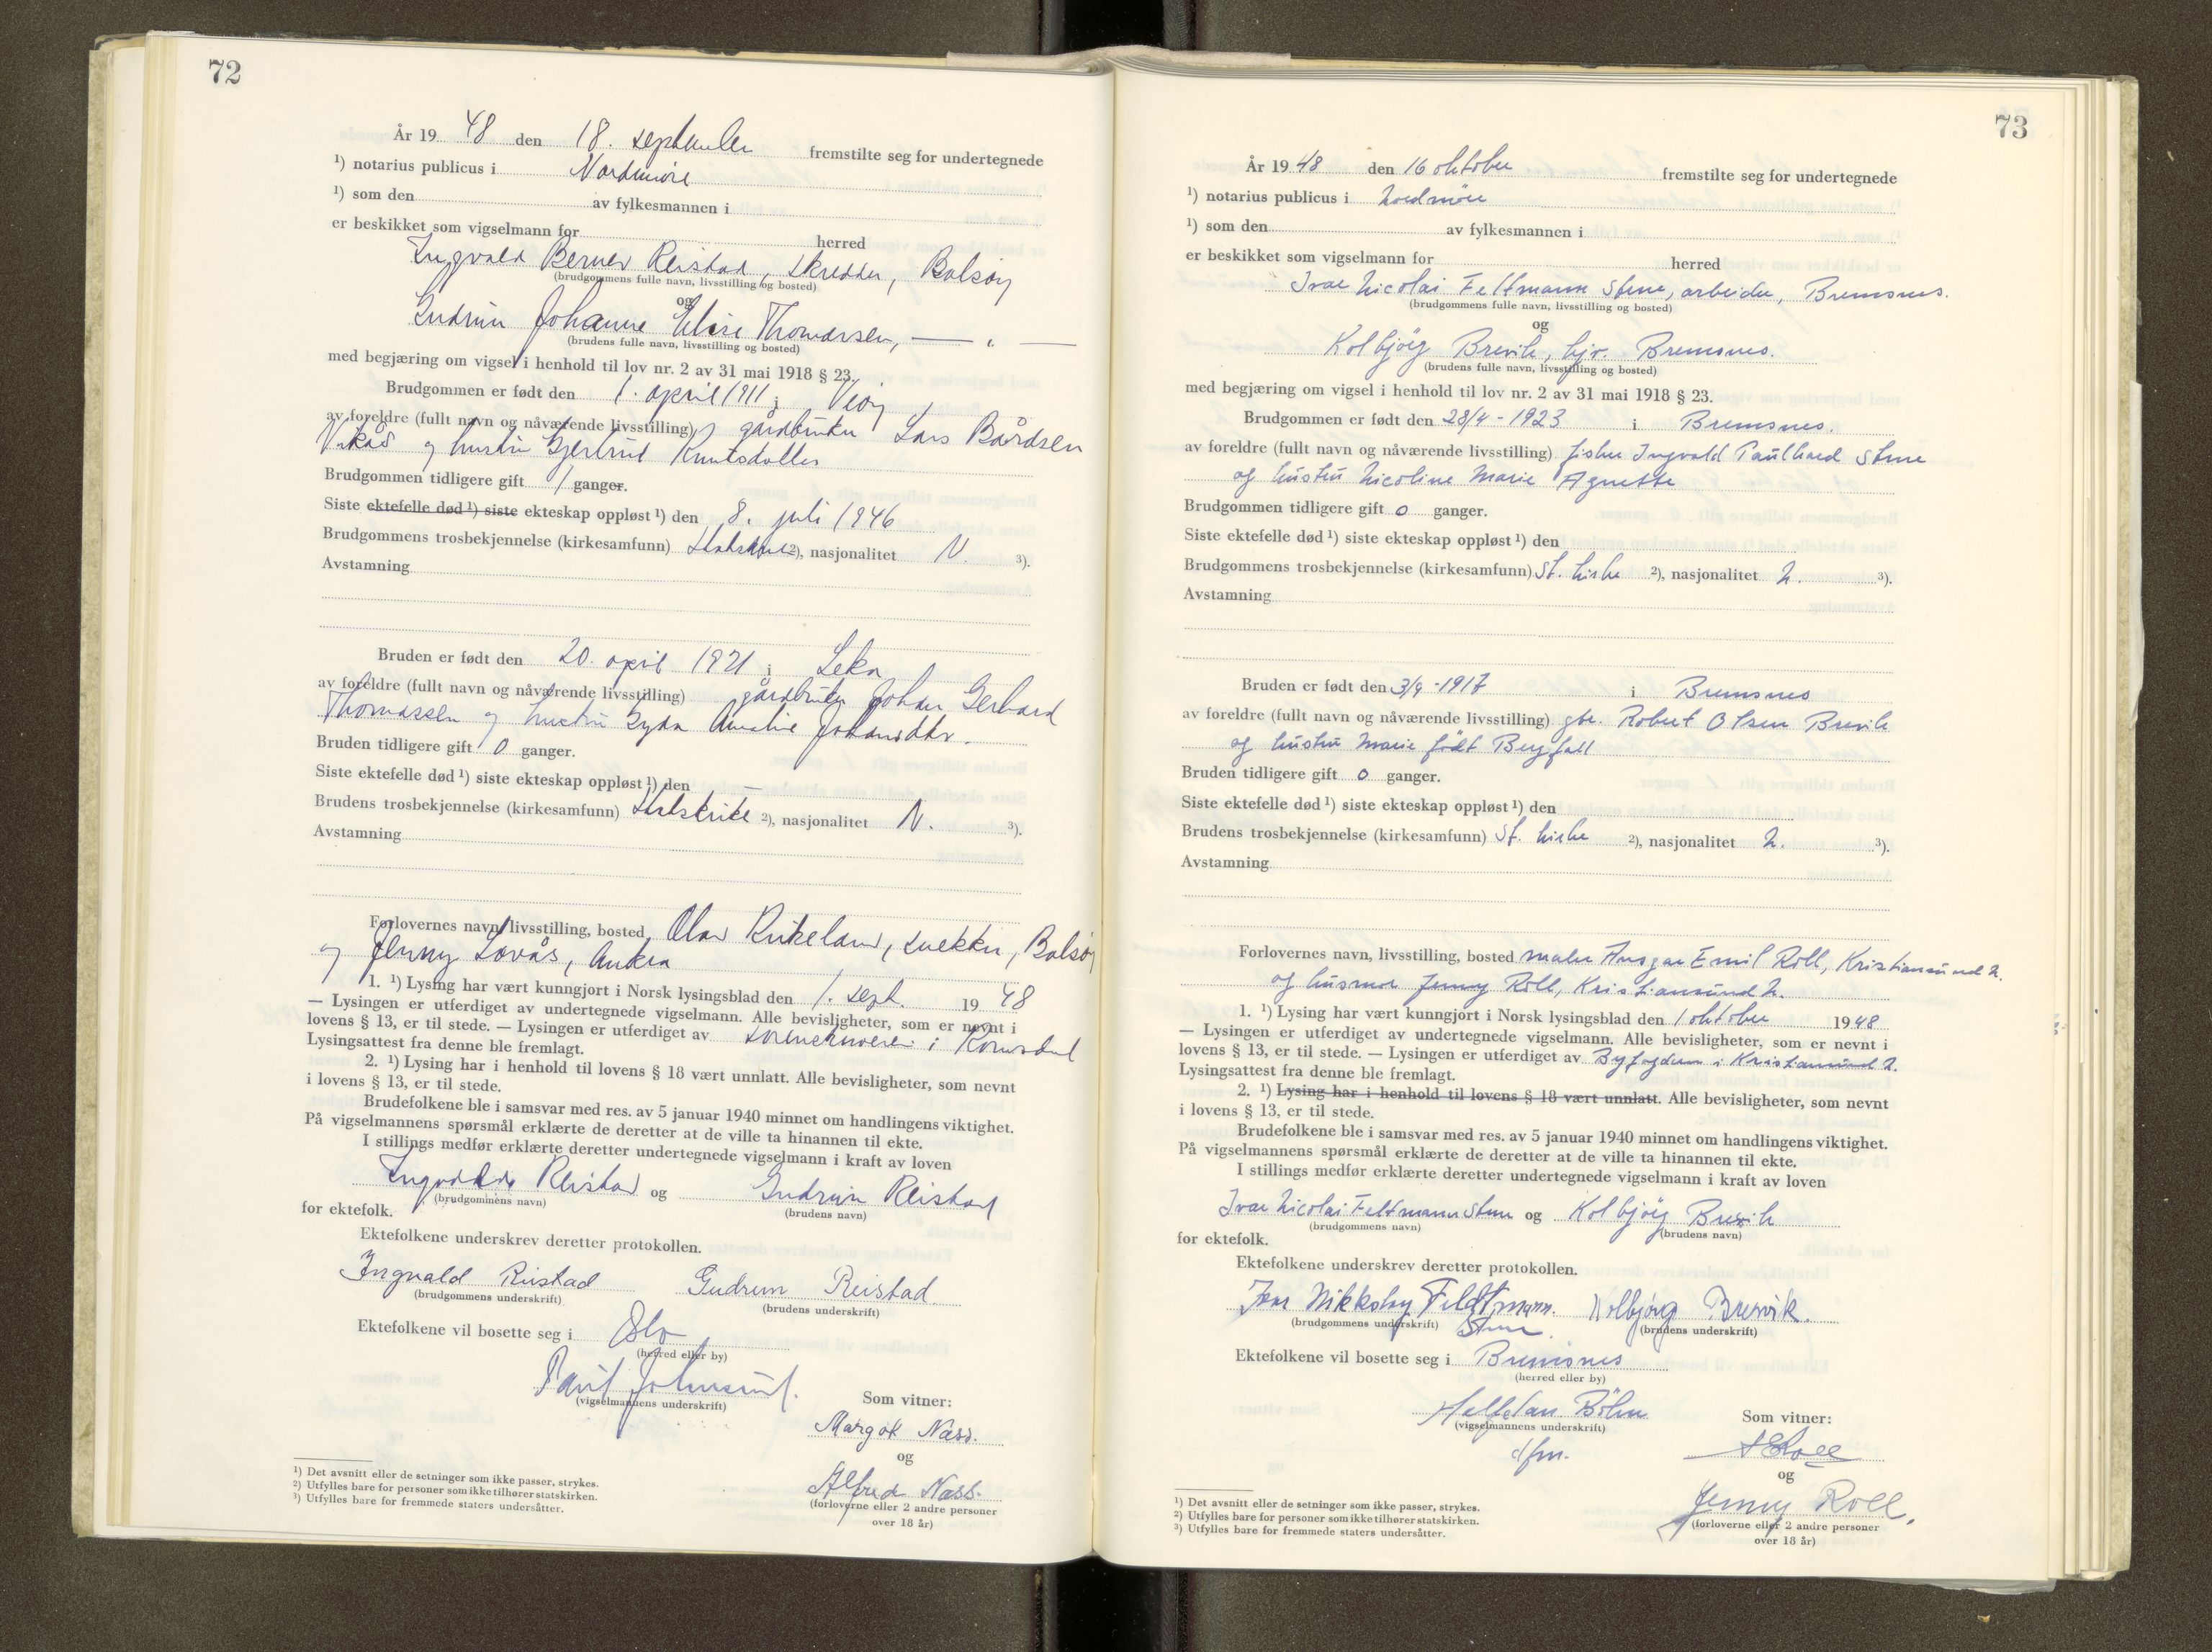 72
År 19 48 den 18. september fremstilte seg for undertegnede
¹) notarius publicus i Nordmøre
¹) som den av fylkesmannen i
er beskikket som vigselmann for herred
Ingvald Berner Reistad, skredder, Bolsøy
(brudgommens fulle navn, livsstilling og bosted)
og
Gudrun Johanne Elise Thomassen, — " —
(brudens fulle navn, livsstilling og bosted)
med begjæring om vigsel i henhold til lov nr. 2 av 31 mai 1918 § 23.
Brudgommen er født den 1. april 1911 i Veøy
av foreldre (fullt navn og nåværende livsstilling) gårdbruker Lars Bårdsen
Vikås og hustru Gjertrud Knutsdatter
Brudgommen tidligere gift 1 ganger.
Siste ektefelle død ¹) siste ekteskap oppløst ¹) den 8. juli 1946
Brudgommens trosbekjennelse (kirkesamfunn) statskirke ²), nasjonalitet N. ³).
Avstamning
Bruden er født den 20. april 1921 i Leka
av foreldre (fullt navn og nåværende livsstilling) gårdbruker Johan Gerhard
Thomassen og hustru Gyda Amalie Johansdtr.
Bruden tidligere gift 0 ganger.
Siste ektefelle død ¹) siste ekteskap oppløst ¹) den —
Brudens trosbekjennelse (kirkesamfunn) statskirke ²), nasjonalitet N. ³).
Avstamning
Forlovernes navn, livsstilling, bosted Olav snekker, Bolsøy
og Jenny Løvås, Aukra
1. ¹) Lysing har vært kunngjort i Norsk lysingsblad den 1. sept. 19 48
— Lysingen er utferdiget av undertegnede vigselmann. Alle bevisligheter, som er nevnt i
lovens § 13, er til stede. — Lysingen er utferdiget av sorenskriveren i Romsdal
Lysingsattest fra denne ble fremlagt.
2. ¹) Lysing har i henhold til lovens § 18 vært unnlatt. Alle bevisligheter, som nevnt
i lovens § 13, er til stede.
Brudefolkene ble i samsvar med res. av 5 januar 1940 minnet om handlingens viktighet.
På vigselmannens spørsmål erklærte de deretter at de ville ta hinannen til ekte.
I stillings medfør erklærte deretter undertegnede vigselmann i kraft av loven
Ingvald Reistad og Gudrun Reistad
(brudgommens navn) (brudens navn)
for ektefolk.
Ektefolkene underskrev deretter protokollen.
Ingvald Reistad Gudrun Reistad
(brudgommens underskrift) (brudens underskrift)
Ektefolkene vil bosette seg i Oslo
(herred eller by)
(vigselmannens underskrift)
Som vitner:
Margot Næss.
og
Alfred Næss.
(forloverne eller 2 andre personer
over 18 år)
¹) Det avsnitt eller de setninger som ikke passer, strykes.
²) Utfylles bare for personer som ikke tilhører statskirken.
³) Utfylles bare for fremmede staters undersåtter.
73
År 19 48 den 16 oktober fremstilte seg for undertegnede
¹) notarius publicus i Nordmöre
¹) som den av fylkesmannen i
er beskikket som vigselmann for herred
Ivar Nicolai Feltmann Stene, arbeider, Bremsnes.
(brudgommens fulle navn, livsstilling og bosted)
og
Kolbjörg Brevik, hjv. Bremsnes.
(brudens fulle navn, livsstilling og bosted)
med begjæring om vigsel i henhold til lov nr. 2 av 31 mai 1918 § 23.
Brudgommen er født den 28/4 - 1923 i Bremsnes.
av foreldre (fullt navn og nåværende livsstilling) fisker Ingvald Paulhard Stene
og hustru Nicoline Marie Agnette
Brudgommen tidligere gift 0 ganger.
Siste ektefelle død ¹) siste ekteskap oppløst ¹) den
Brudgommens trosbekjennelse (kirkesamfunn) St. kirke ²), nasjonalitet N. ³).
Avstamning
Bruden er født den 3/9 - 1917 i Bremsnes
av foreldre (fullt navn og nåværende livsstilling) gbr. Robert Olsen Brevik
og hustru Marie födt Bergfall
Bruden tidligere gift 0 ganger.
Siste ektefelle død ¹) siste ekteskap oppløst ¹) den
Brudens trosbekjennelse (kirkesamfunn) St. kirke ²), nasjonalitet N. ³).
Avstamning
Forlovernes navn, livsstilling, bosted maler Ansgar Emil Roll, Kristiansund N.
og husmor Jenny Roll, Kristiansund N.
1. ¹) Lysing har vært kunngjort i Norsk lysingsblad den 1 oktober 19 48
— Lysingen er utferdiget av undertegnede vigselmann. Alle bevisligheter, som er nevnt i
lovens § 13, er til stede. — Lysingen er utferdiget av Byfogden i Kristiansund N.
Lysingsattest fra denne ble fremlagt.
2. ¹) Lysing har i henhold til lovens § 18 vært unnlatt. Alle bevisligheter, som nevnt
i lovens § 13, er til stede.
Brudefolkene ble i samsvar med res. av 5 januar 1940 minnet om handlingens viktighet.
På vigselmannens spørsmål erklærte de deretter at de ville ta hinannen til ekte.
I stillings medfør erklærte deretter undertegnede vigselmann i kraft av loven
Ivar Nicolai Feltmann Stene og Kolbjörg Brevik
(brudgommens navn) (brudens navn)
for ektefolk.
Ektefolkene underskrev deretter protokollen.
Ivar Nikkolay Feldtmann. Kolbjørg Brevik.
(brudgommens underskrift) Stene. (brudens underskrift)
Ektefolkene vil bosette seg i Bremsnes
(herred eller by)
Halfdan Böhn
(vigselmannens underskrift)
dfm.
Som vitner:
A E Roll
og
Jenny Roll.
(forloverne eller 2 andre personer
over 18 år)
¹) Det avsnitt eller de setninger som ikke passer, strykes.
²) Utfylles bare for personer som ikke tilhører statskirken.
³) Utfylles bare for fremmede staters undersåtter.